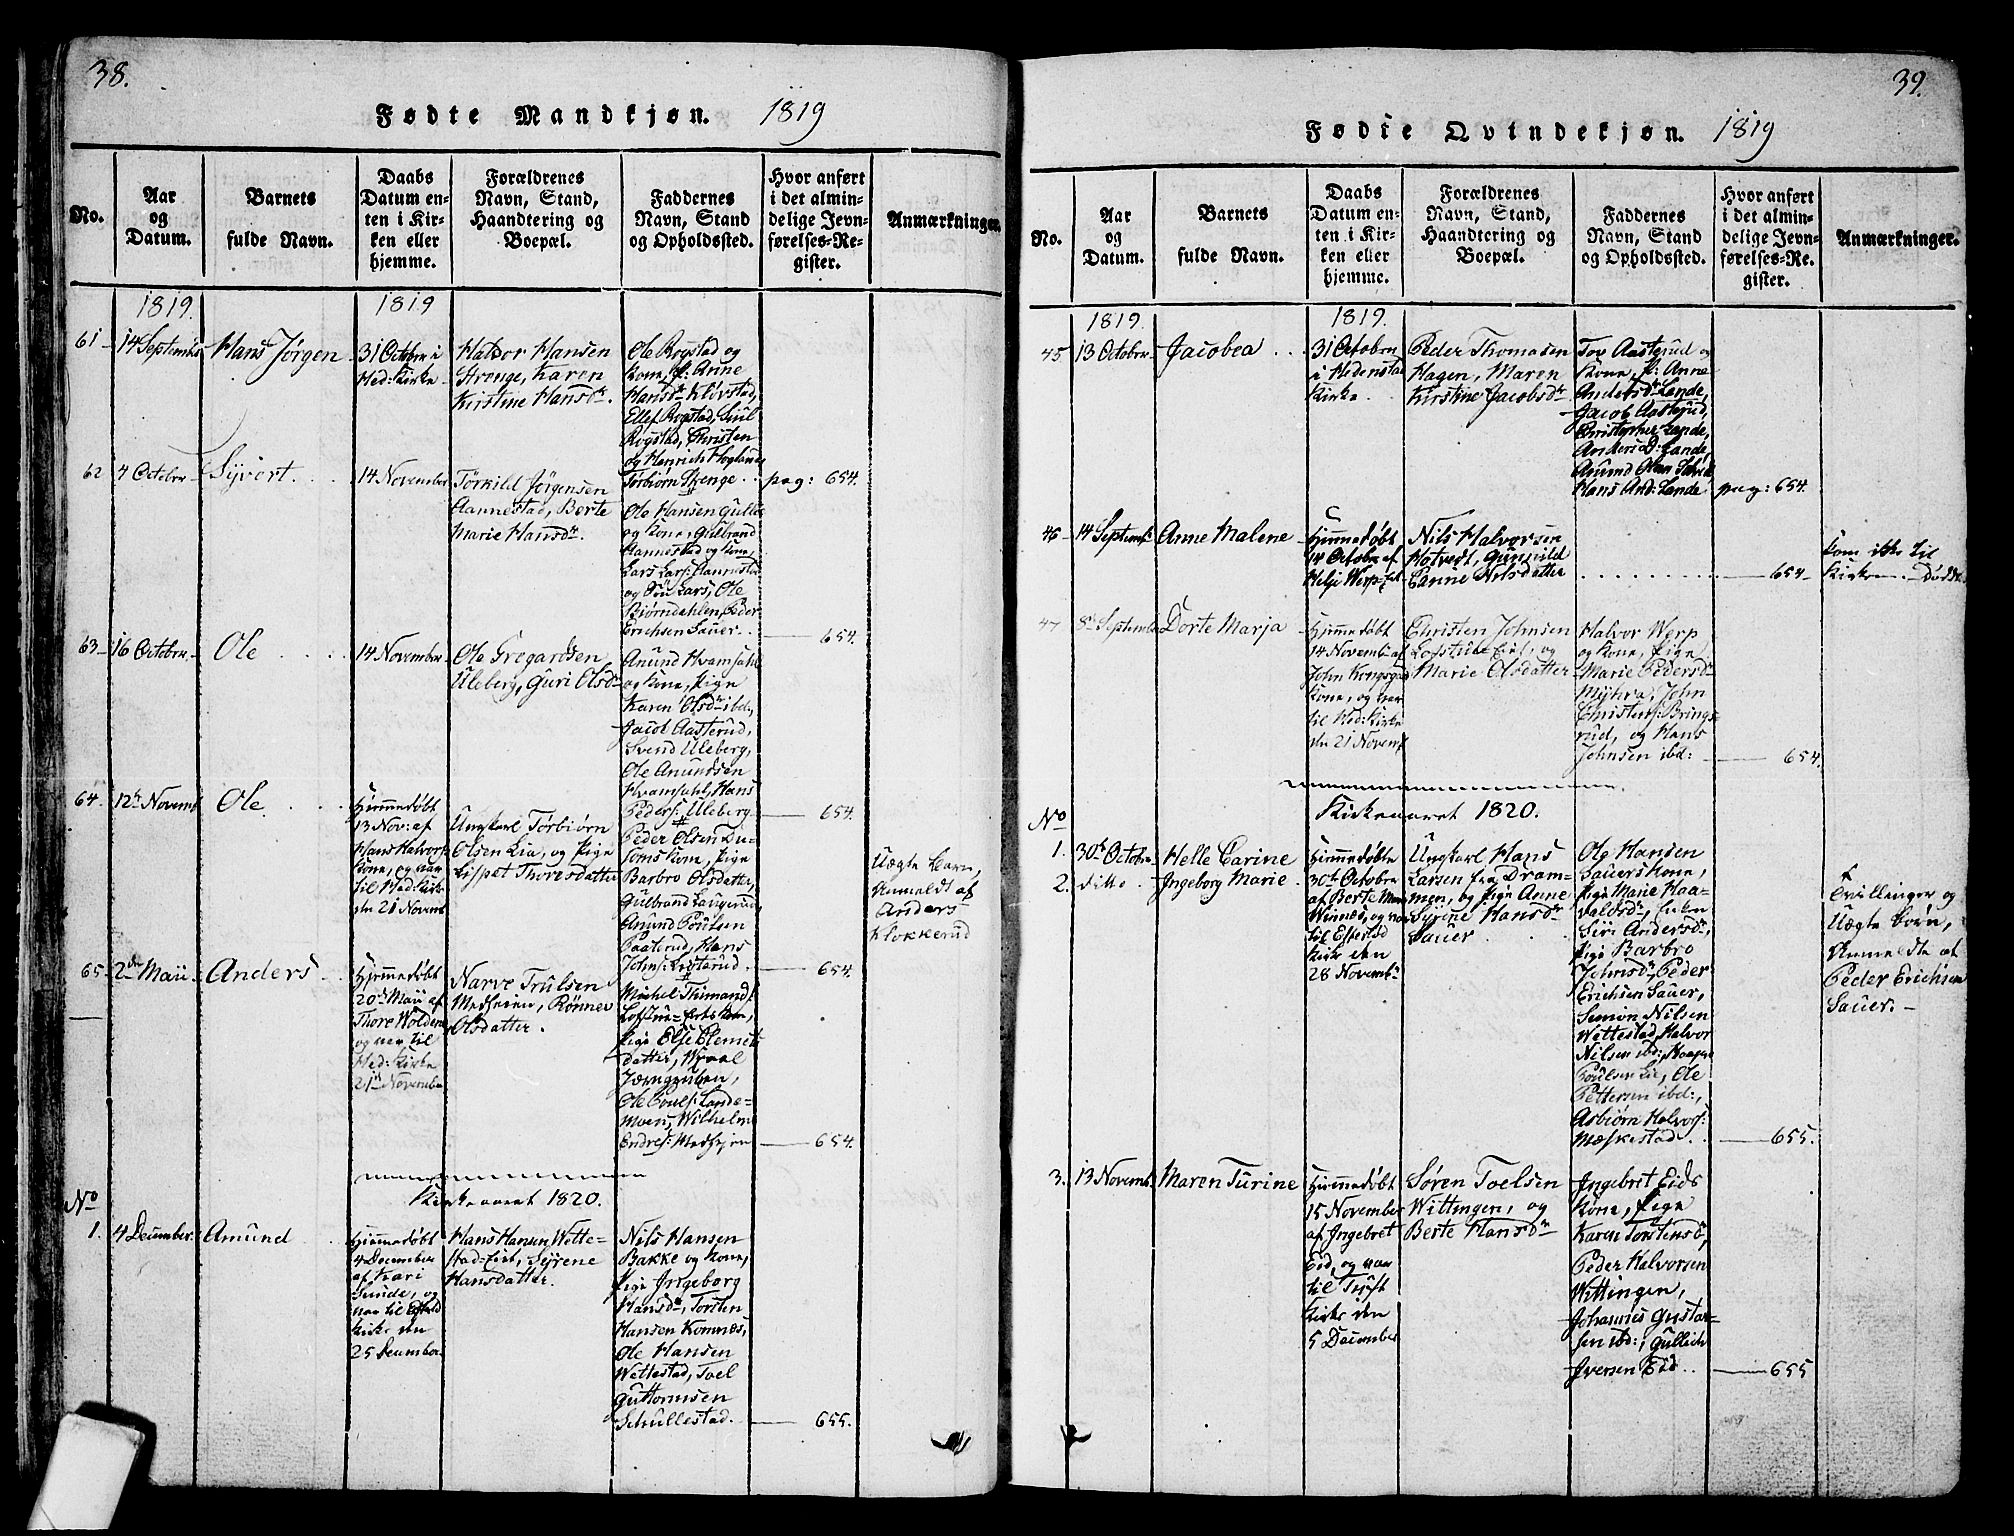 38.
Fødte Mandkjøn. 1819
No.
Aar
og
Datum.
Barnets
fulde Navn.
Daabs
Datum en-
ten i Kir-
ken eller
hjemme.
Forældrenes
Navn, Stand,
Haandtering og
Boepæl.
Faddernes
Navn, Stand
og Opholdssted.
Hvor anført
i det almin-
delige Jevn-
førelses-Re-
gister.
Anmærkninger.
1819.
1819
61
14 Septembr
Hans Jørgen
31 Octobr i
Hed: Kirke
Halvor Hansen
Strenge, Karen
Kirstine Hansdr.
Ole Rogstad og
Kone, p: Anne
Hansdr Kløvstad,
Ellef Rogstad,
Rogstad, Christen
og Henrich Hogland
Torbiørn Skenge
pag: 654.
62
4 Octobr
Syvert.
14 November
Törkild Jørgensen
Hannestad, Berte
Marie Hansdr.
Ole Hansen Gulli
og Kone, Gulbrand
Hannestad og Kone,
Lars Lars: Hannestad
og Lars, Ole
Biørndahlen, Peder
Erichsen Sauer.
654.
63
16 Octobr.
Ole
14 November
Ole Gregardsen
Uleberg, Guri Olsdr
Anund Hvamsahl
og Kone, Pige
Karen Olsdr ibd.,
Jacob Aasterud,
Svend Uleberg,
Ole Anundsen
Hvamsahl, Hans
Peders: Uleberg
654.
64.
12te Novemb
Ole
Hjemmedøbt
13 Nov: af
Hans Halvors:
Kone, og var
til Hed: Kirke
den 21 Novemb
Ungkarl Torbiørn
Olsen Lia, og Pige
Lispet Thoresdatter
Peder Olsen Du-
Kone, Pige
Barbro Olsdatter,
Gulbrand Laugerud
Anund Poulsen
Paaterud, Hans
Johns:
654.
Uægte Barn,
Anmeldt af
Anders
Klokkerud
65
2den Maii
Anders
Hjemmedøbt
20de Maii af
Thore Wolden
og var til
Hed: Kirke
21de Novembr
Narve Trulsen
Medheien, Rønnev
Olsdatter.
Michel Thimand:
Kone,
Pige Else Clemets
datter,
Jærngruben,
Ole Pouls: Lande-
Moen, Wilhelm
Endres: Medhejen
654.
Kirkeaaret 1820.
No
1.
4 December.
Amund
Hjemmedøbt
4 December
af Kari
Sunde, og
var til
Kirke den
25 December.
Hans Hansen Wette-
stad=Eiet, Syrene
Hansdatter.
Nils Hansen
Bakke og Kone,
Pige Ingeborg
Hansdr, Torsten
Hansen Komnæs,
Ole Hansen
Wettestad, Toel
Guttormsen
Schullestad.
655.
39.
Fødte Qvindekjøn. 1819
No.
Aar
og
Datum.
Barnets
fulde Navn.
Daabs
Datum en-
ten i Kir-
ken eller
hjemme.
Forældrenes
Navn, Stand,
Haandtering og
Boepæl.
Faddernes
Navn, Stand
og Opholdssted.
Hvor anført
i det almin-
delige Jevn-
førelses-Re-
gister.
Anmærkninger.
1819.
1819.
45
13 Octobr
Jacobea
31 Octobr
i Hedenstad
Kirke
Peder Thomasen
Hagen, Maren
Kirstine Jacobsdr
Tov Aasterud og
Kone, p: Anne
Andersdr Lande,
Jacob Aasterud,
Christopher Lande,
Anders Lande,
Anund Olsen
Hans And: Lande
pag: 654.
46
14 Septemb
Anne Malene
Hjemmedøbt
14 Octobr af
Helje Werp
Nils Halvorsen
Hotvedt, Gunnild
Carine Nilsdatter
654
Kom ikke til
Kirken. Døde
47
8de September
Dorte Marja
Hjemmedøbt
14 Novemb af
John Kongsgrd
Kone, og var
til Hed: Kirke
den 21 Novemb
Christen Johnsen
Loftue=Eiet, og
Marie Olsdatter
Halvor Werp
og Kone, Pige
Marie Pedersdr
Myhra, John
Christens: Brings-
rud, og Hans
Johnsen ibd:
654.
Kirkeaaret 1820.
No
1.
30te Octobr
Helle Carine
2.
ditto
Ingeborg Marie
Hjemmedøbte
30te Octobr
af Berte
Winnes, og var
til Efteløt
Kirke den
28 Novembr
Ungkarl Hans
Larsen fra Dram-
men, og Pige Anne
Syrine Hansdr
Sauer
Ole Hansen
Sauers Kone,
Pige Marie Haa-
valdsdr, Enken
Siri Andersdr
Pige Barbro
Johnsdr, Peder
Erichsen Sauer,
Semon Nilsen
Wettestad, Halvor
Nilsen ibd:, Haagen
Poulsen Lie, Ole
Pettersen ibd:,
Asbiørn Halvors:
Mæskestad
655.
Tvillinger og
Uægte Børn,
Anmeldte af
Peder Erichsen
Sauer.
3.
13 Novemb.
Maren Turine
Hjemmedøbt
15 November
af Ingebret
Eed, og var
til Tuft
Kirke den
5 December
Søren Toelsen
Wittingen, og
Berte Hansdr
Ingebret Eids
Kone, Pige
Karen Torstensdr,
Peder Halvorsen
Wittingen,
Johannes Gustav-
sen ibd:, Gullich
Iversen Eed.
655